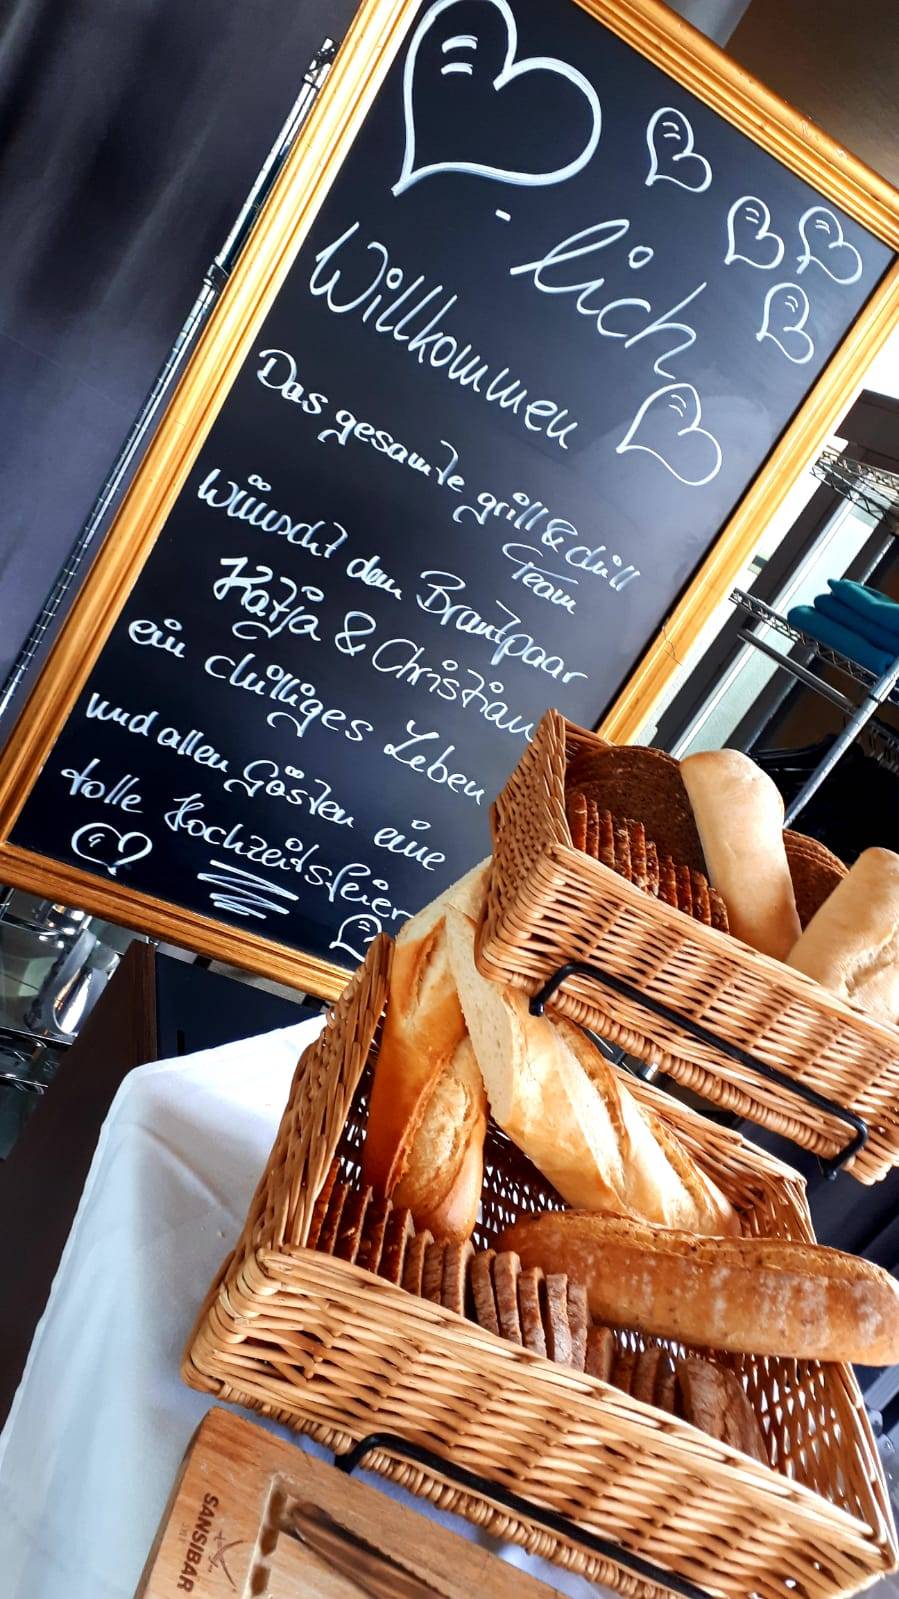 - lich
Willkommen
Das gesamte grill & chill
Team
wünscht dem Brautpaar
Katja & Christian
ein chilliges Leben
und allen Gästen eine
tolle Hochzeitsfeier
SANSIBAR
SYLT